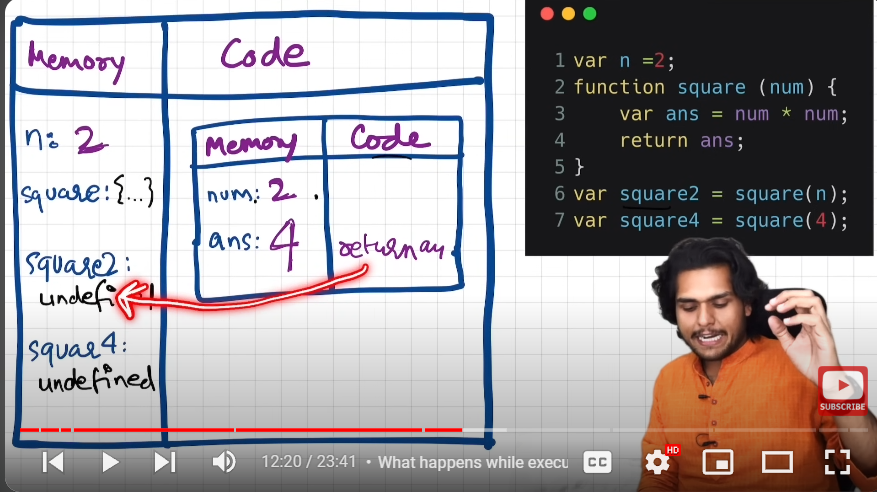 Memory
Code
n: 2
square: {...}
square2:
undefi
squar4:
undefined
Memory
Code
num: 2
ans: 4
return an
1 var n =2;
2 function square (num) {
3 var ans = num * num;
4 return ans;
5 }
6 var square2 = square(n);
7 var square4 = square(4);
SUBSCRIBE
12:20 / 23:41 • What happens while execu
CC
HD